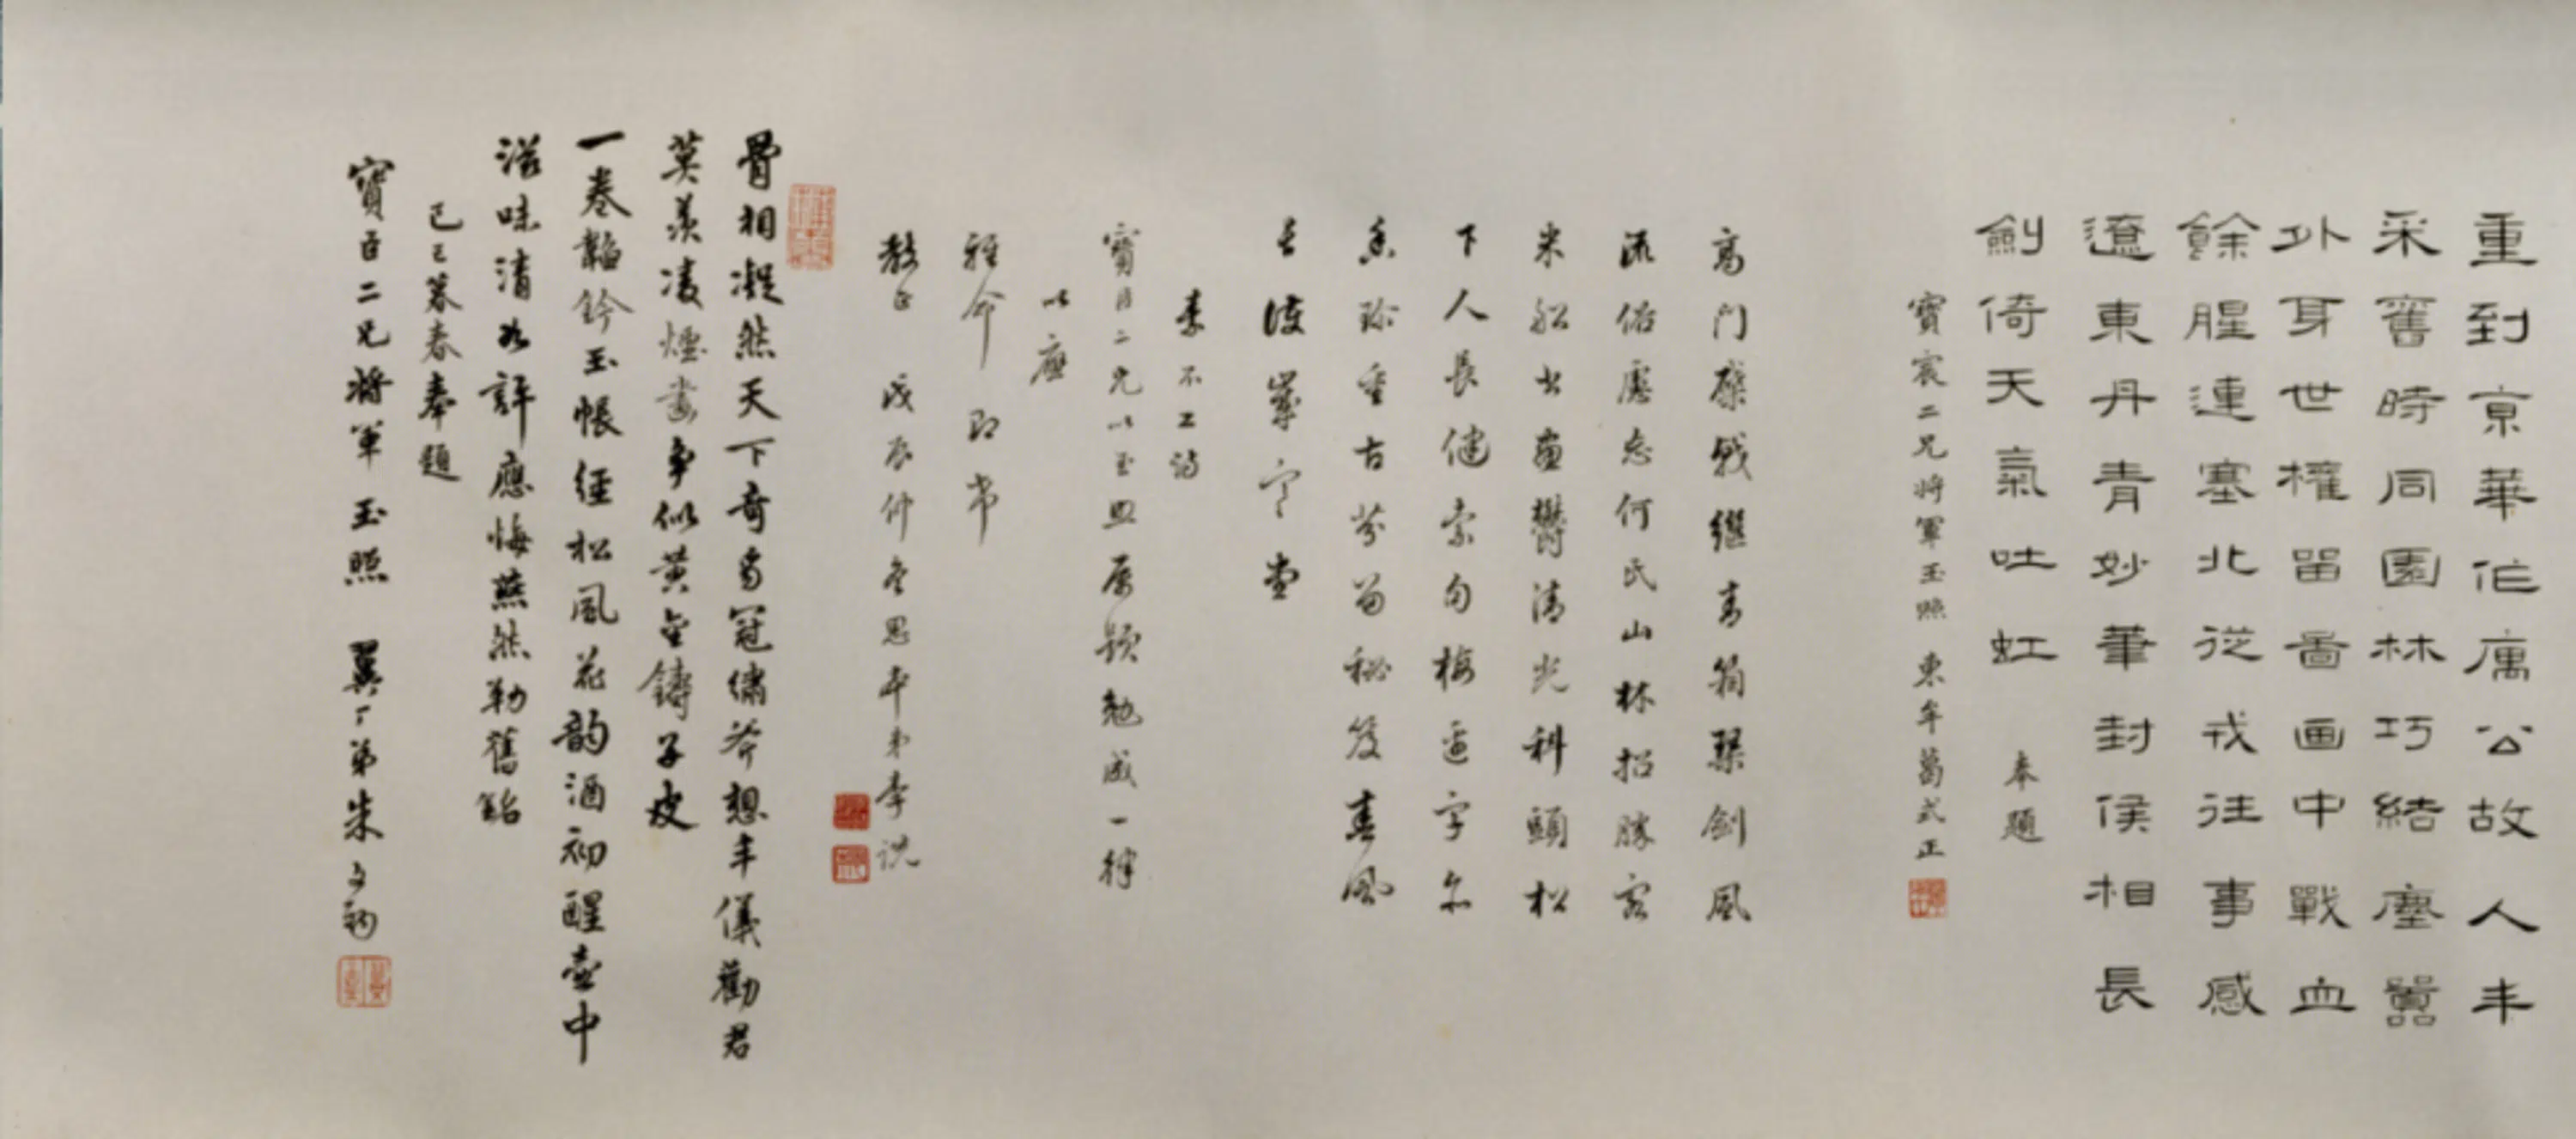 重到京華伫厲公故人丰
采舊時同園林巧結塵囂
外身世權留啚画中戰血
餘腥連塞北從戎往事感
遼東丹青妙筆封侯相長
劍倚天氣吐虹 奉題
寶宸二兄將軍玉照 東牟葛式正
高門棨戟繼青箱琴劍風
流俗慮忘何氏山林招勝客
米船書畫鬱清光科頭松
下人長健索句梅邊字亦
香珍重古芬留秘笈春風
長護
素不工詩
寶 二兄以玉照屬題勉成一律
以應
雅命即希
教正 戊辰仲冬 弟李
骨相凝然天下奇 冠繡斧想丰儀勸君
莫羨凌煙畫爭似黃金鑄子皮
一卷韜鈐玉帳經松風花韵酒初醒壺中
滋味清如許應悔燕然勒舊銘
己巳暮春奉題
寶 二兄將軍玉照 弟朱